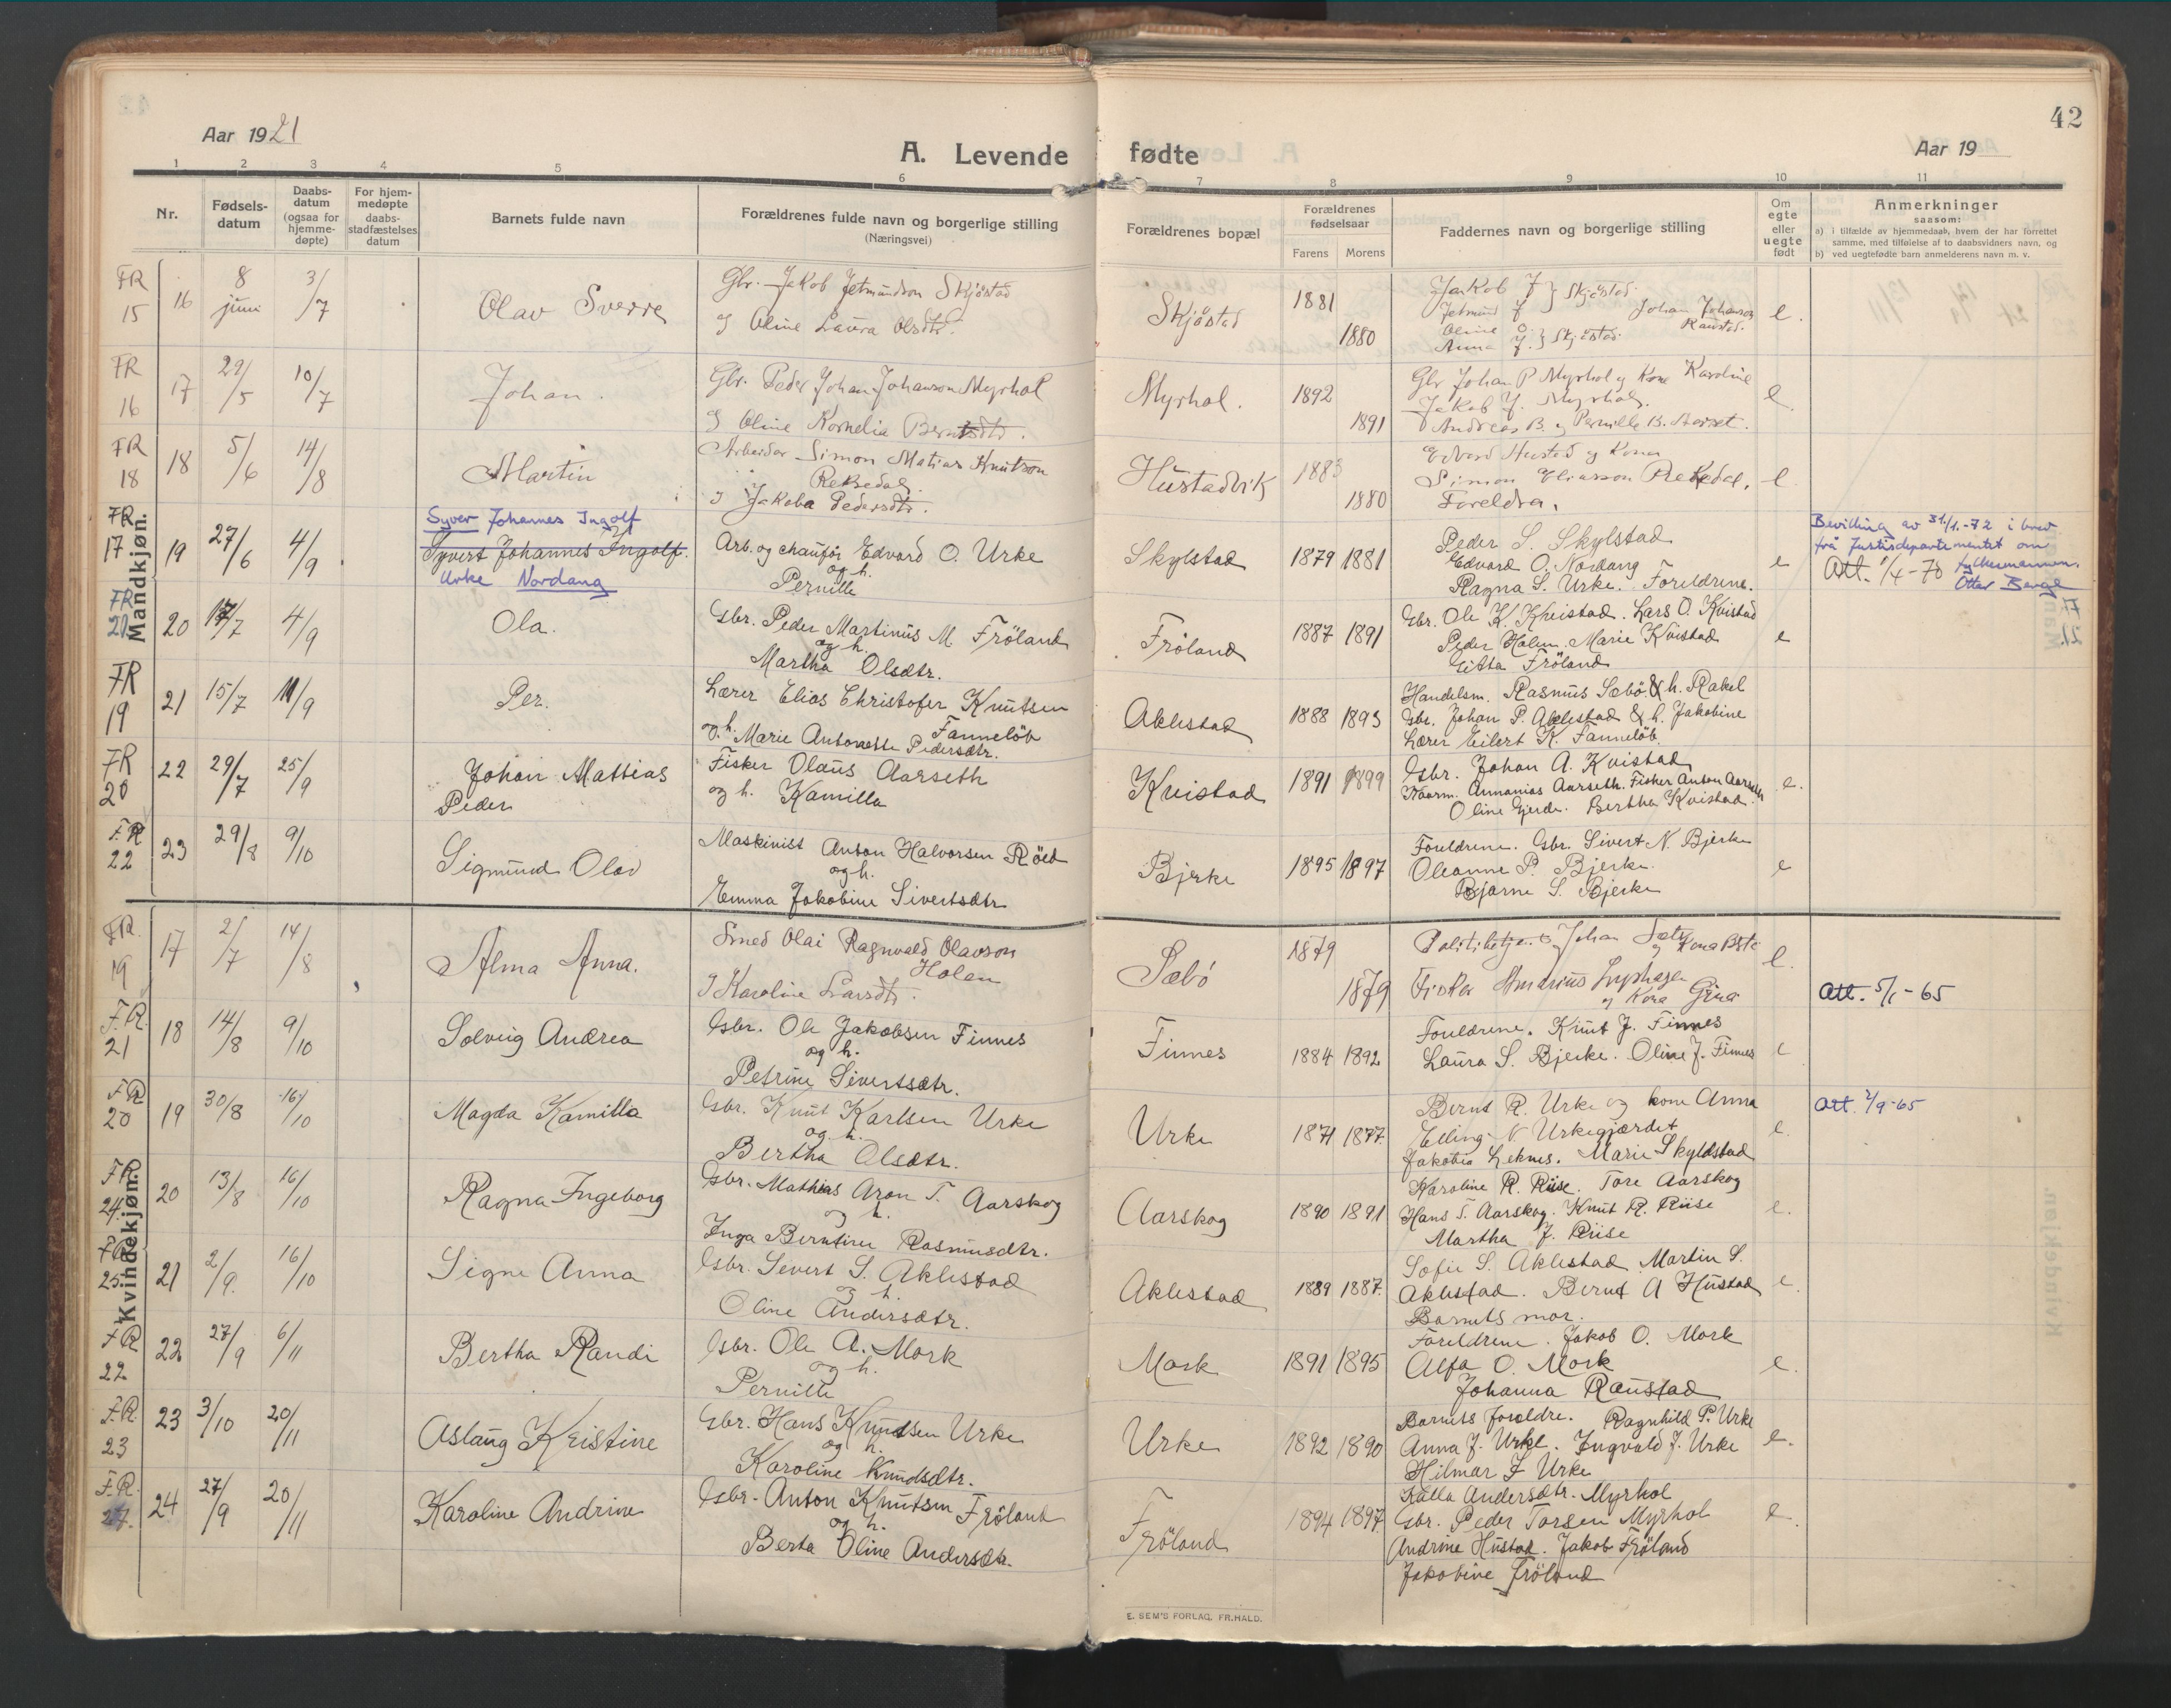 42
Aar 1921
A. Levende fødte
Aar 19
1 2 3 4 5 6 7 8 9 10 11
Nr.
Fødsels-datum
Daabs-datum (ogsaa for hjemme-døpte)
For hjem-medøpte daabs-stadfæstelses datum
Barnets fulde navn
Forældrenes fulde navn og borgerlige stilling
(Næringsvei)
Forældrenes bopæl
Forældrenes fødselsaar
Farens Morens
Faddernes navn og borgerlige stilling
Om egte eller uegte født
Anmerkninger
saasom:
a) i tilfælde av hjemmedaab, hvem der har forrettet
samme, med tilføielse af to daabsvidners navn, og
b) ved uegtefødte barn anmelderens navn m. v.
Mandkjøn.
FR 15 16 8 juni 3/7 Olav Sverre
Gbr. Jakob Jetmundson Skjåstad
g Oline Laura Olsdtr.
Skjåstad 1881 1880
Jakob J Jetmund J } Skjåstad
Oline O. Anna J. } Skjåstad
Johan Johanson Raustad. e.
FR 16 17 29/5 10/7 Johan.
Gbr. Peder Johan Johanson Myrhol
g Oline Kornelia Berntsdtr.
Myrhol. 1892 1891
Gbr Johan P Myrhol og Kone Karoline
Jakob J. Myrhol.
Andreas B. og Pernille B. Aarset. e.
FR 18 18 5/6 14/8 Martin
Arbeider Simon Matias Knutson
Rekedal
g Jakoba Pedersdtr.
Hustadvik 1883 1880
Edvard Hustad og Kona
Simon Eliasson Rekedal.
Foreldra. e.
FR 17 19 27/6 4/9
Syver Johannes Ingolf
Syvert Johannes Ingolf.
Urke Nordang
Arb. og chaufør Edvard O. Urke
og h.
Pernille
Skylstad 1879 1881
Peder S. Skylstad
Edvard O. Nordang
Ragna S. Urke. Foreldrene. e
Bevilling av 31/1.-72 i brev
frå Justisdepartementet om
Att. 1/4-70 fylkesmannen.
FR 21 20 17/7 4/9 Ola.
Gbr. Peder Martinus M. Fröland
og h.
Martha Olsdtr.
Fröland 1887 1891
Gbr. Ole K. Kvistad. Lars O. Kvistad
Peder Holen. Marie Kvistad
Gitta Fröland e
FR 19 21 15/7 11/9 Per.
Lærer Elias Christofer Knutsen
Fanneløb
og h. Marie Antonette Pedersdtr.
Aklestad 1888 1893
Handelsm. Rasmus Sæbö & h. Rakel
Gbr. Johan P. Aklestad & h. Jakobine
Lærer Eilert K. Fanneløb.
FR 20 22 29/7 25/9 Johan Mattias
Peder
Fisker Olaus Aarseth
og h. Kamilla
Kvistad 1891 1899
Gbr. Johan A. Kvistad
Ananias Aarseth. Fisker Anton Aarseth
Oline Gjerde. Bertha Kvistad. e.
F.R 22 23 29/8 9/10 Sigmund Olav
Maskinist Anton Halvorsen Röed
og h.
Emma Jakobine Sivertsdtr
Bjerke 1895 1897
Foreldrene. Gbr. Sivert N. Bjerke
Oleanne P. Bjerke.
Bjarne S. Bjerke e
Kvindekjøn.
FR. 19 17 2/7 14/8 Alma Anna.
Smed Olai Ragnvald Olavson
Holen
g Karoline Larsdtr.
Sæbö 1879 1879
Johan
Fisker
og Kona Gina e.
Att. 5/1-65
F.R. 21 18 14/8 9/10 Solveig Andrea
Gbr. Ole Jakobsen Finnes
og h.
Petrine Sivertsdtr.
Finnes 1884 1892
Foreldrene. Knut J. Finnes
Laura S. Bjerke. Oline J. Finnes e
F.R 20 19 30/8 16/10 Magda Kamilla
Gbr. Knut Karlsen Urke
og h.
Bertha Olsdtr.
Urke 1871 1877.
Bernt R. Urke og kone Anna
Elling N Urkegjærdet
Jakobia Leknes. Marie Skyldstad e.
Att. 2/9-65
F.R. 24 20 13/8 16/10 Ragna Ingeborg
Gbr. Mathias Aron T. Aarskog
og h.
Inga Berntine Rasmusdtr.
Aarskog 1890 1891
Karoline R. Riise. Tore Aarskog
Hans T. Aarskog. Knut R. Riise
Martha J. Riise e.
F.R. 25 21 2/9. 16/10 Signe Anna
Gbr. Severt S. Aklestad
og h.
Oline Andersdtr.
Aklestad 1889 1887.
Sofie S. Aklestad Martin S.
Aklestad. Bernt A Hustad
Barnets mor. e.
F.R 22 22 27/9 6/11 Bertha Randi
Gbr. Ole A. Mork
og h.
Pernille
Mork 1891 1895
Foreldrene. Jakob O. Mork
Alfa O. Mork
Johanna Raustad e.
F.R. 23 23 3/10 20/11 Aslaug Kristine
Gbr. Hans Knudsen Urke
og h.
Karoline Knudsdtr.
Urke 1892 1890
Barnets foreldre. Ragnhild P. Urke
Anna J. Urke. Ingvald J. Urke
Hilmar J Urke e.
F.R. 27. 24 27/9 20/11 Karoline Andrine
Gbr. Anton Knutsen Fröland
og h.
Berta Oline Andersdtr.
Fröland 1894 1897
Kalla Andersdtr. Myrhol
Gbr. Peder Torsen Myrhol
Andrine Hustad. Jakob Fröland
Jakobine Fröland e.
E. SEM'S FORLAG, FR.HALD.